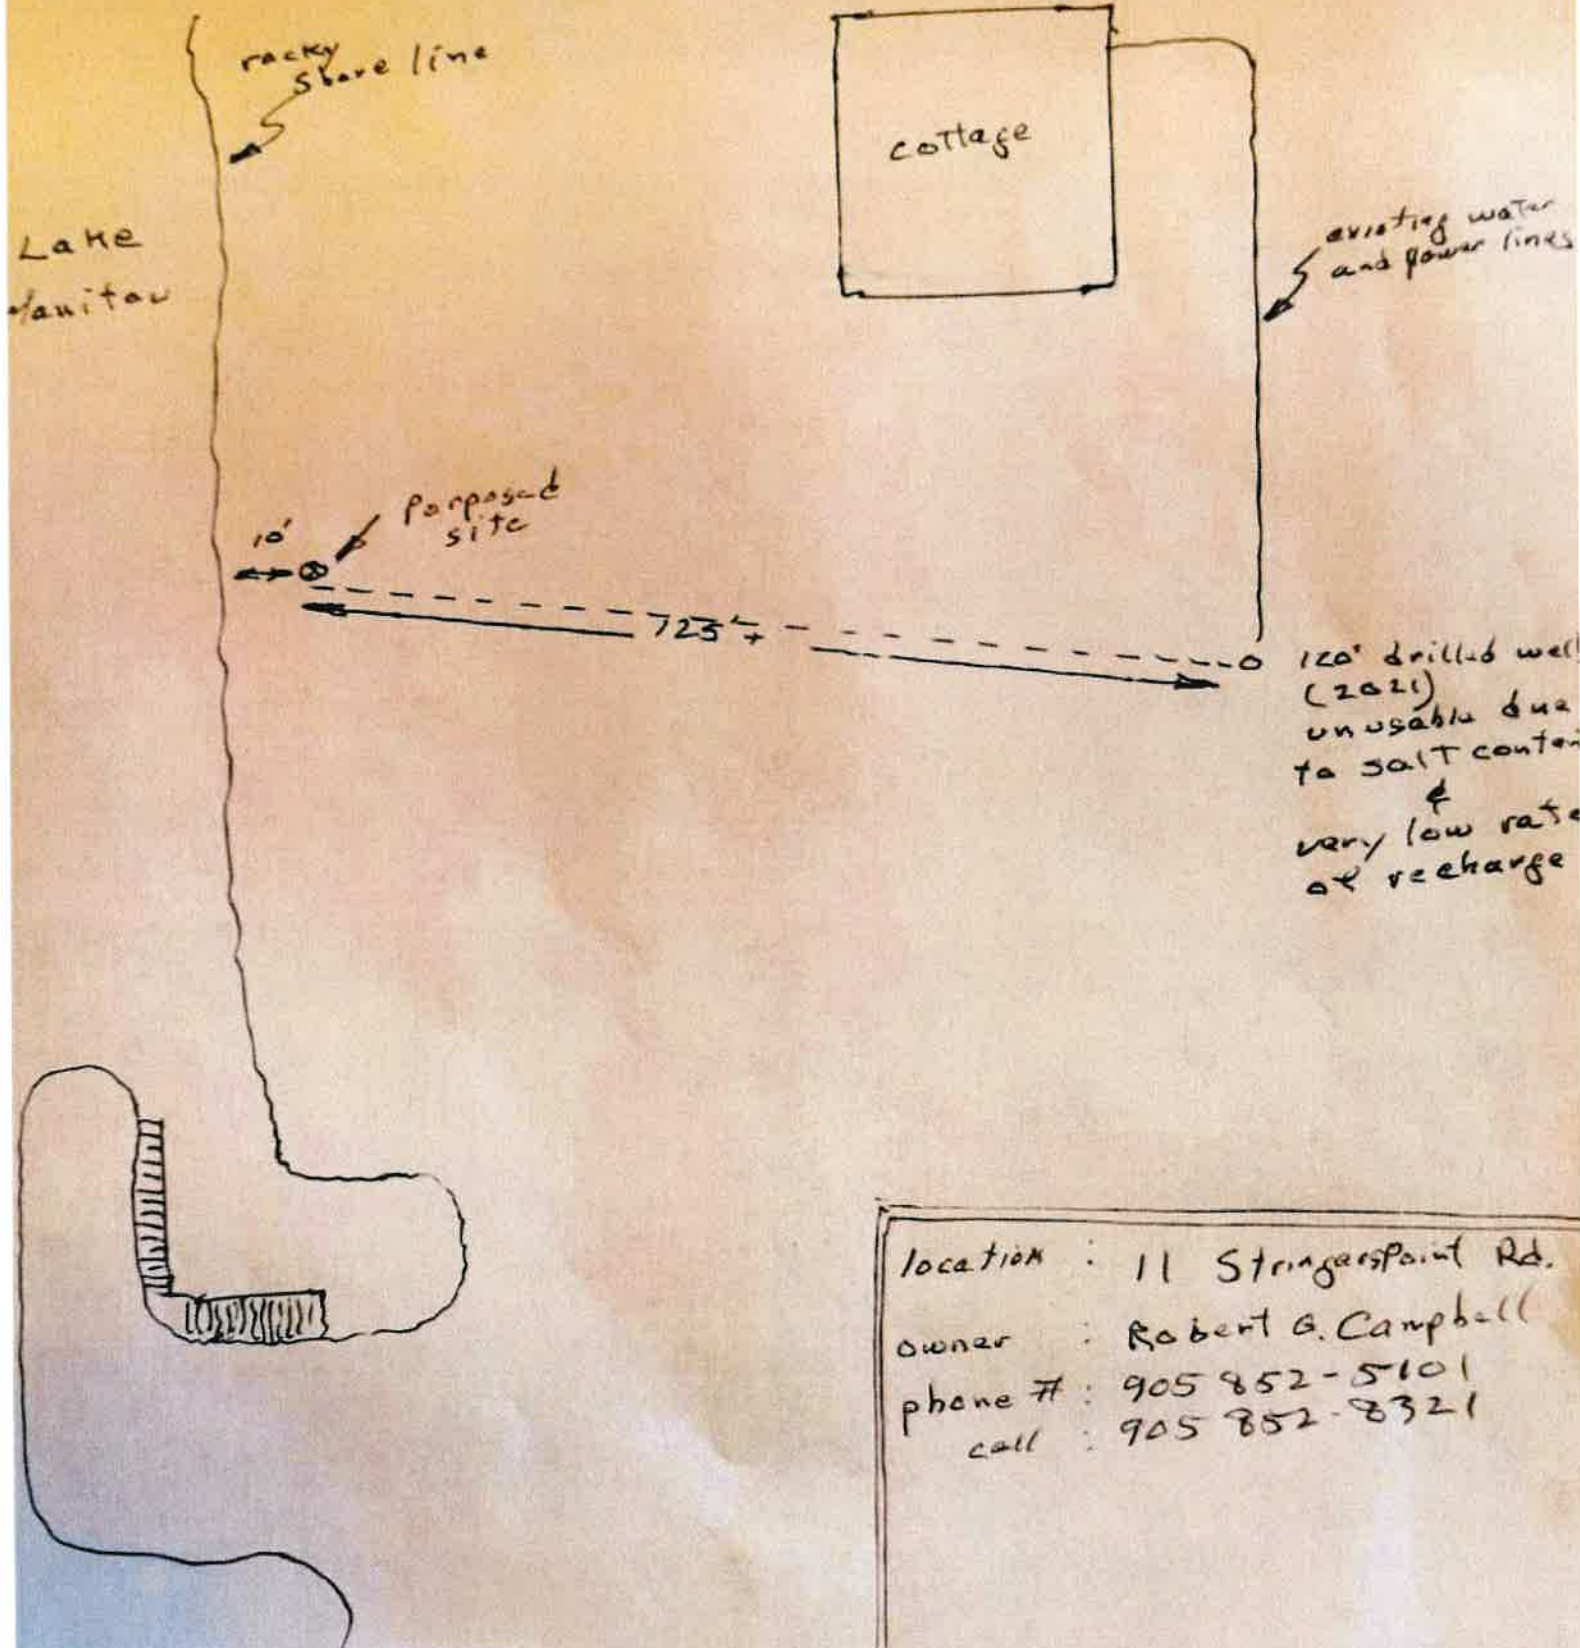 racky
shore line
cottage
Lake
Manitou
existing water
and power lines
10'
Porposed
site
725' ±
120' drilled well
(2021)
unusable due
to salt content
&
very low rate
of recharge
location : 11 Stringerspoint Rd.
owner : Robert G. Campbell
phone # : 905 852-5101
cell : 905 852-8321